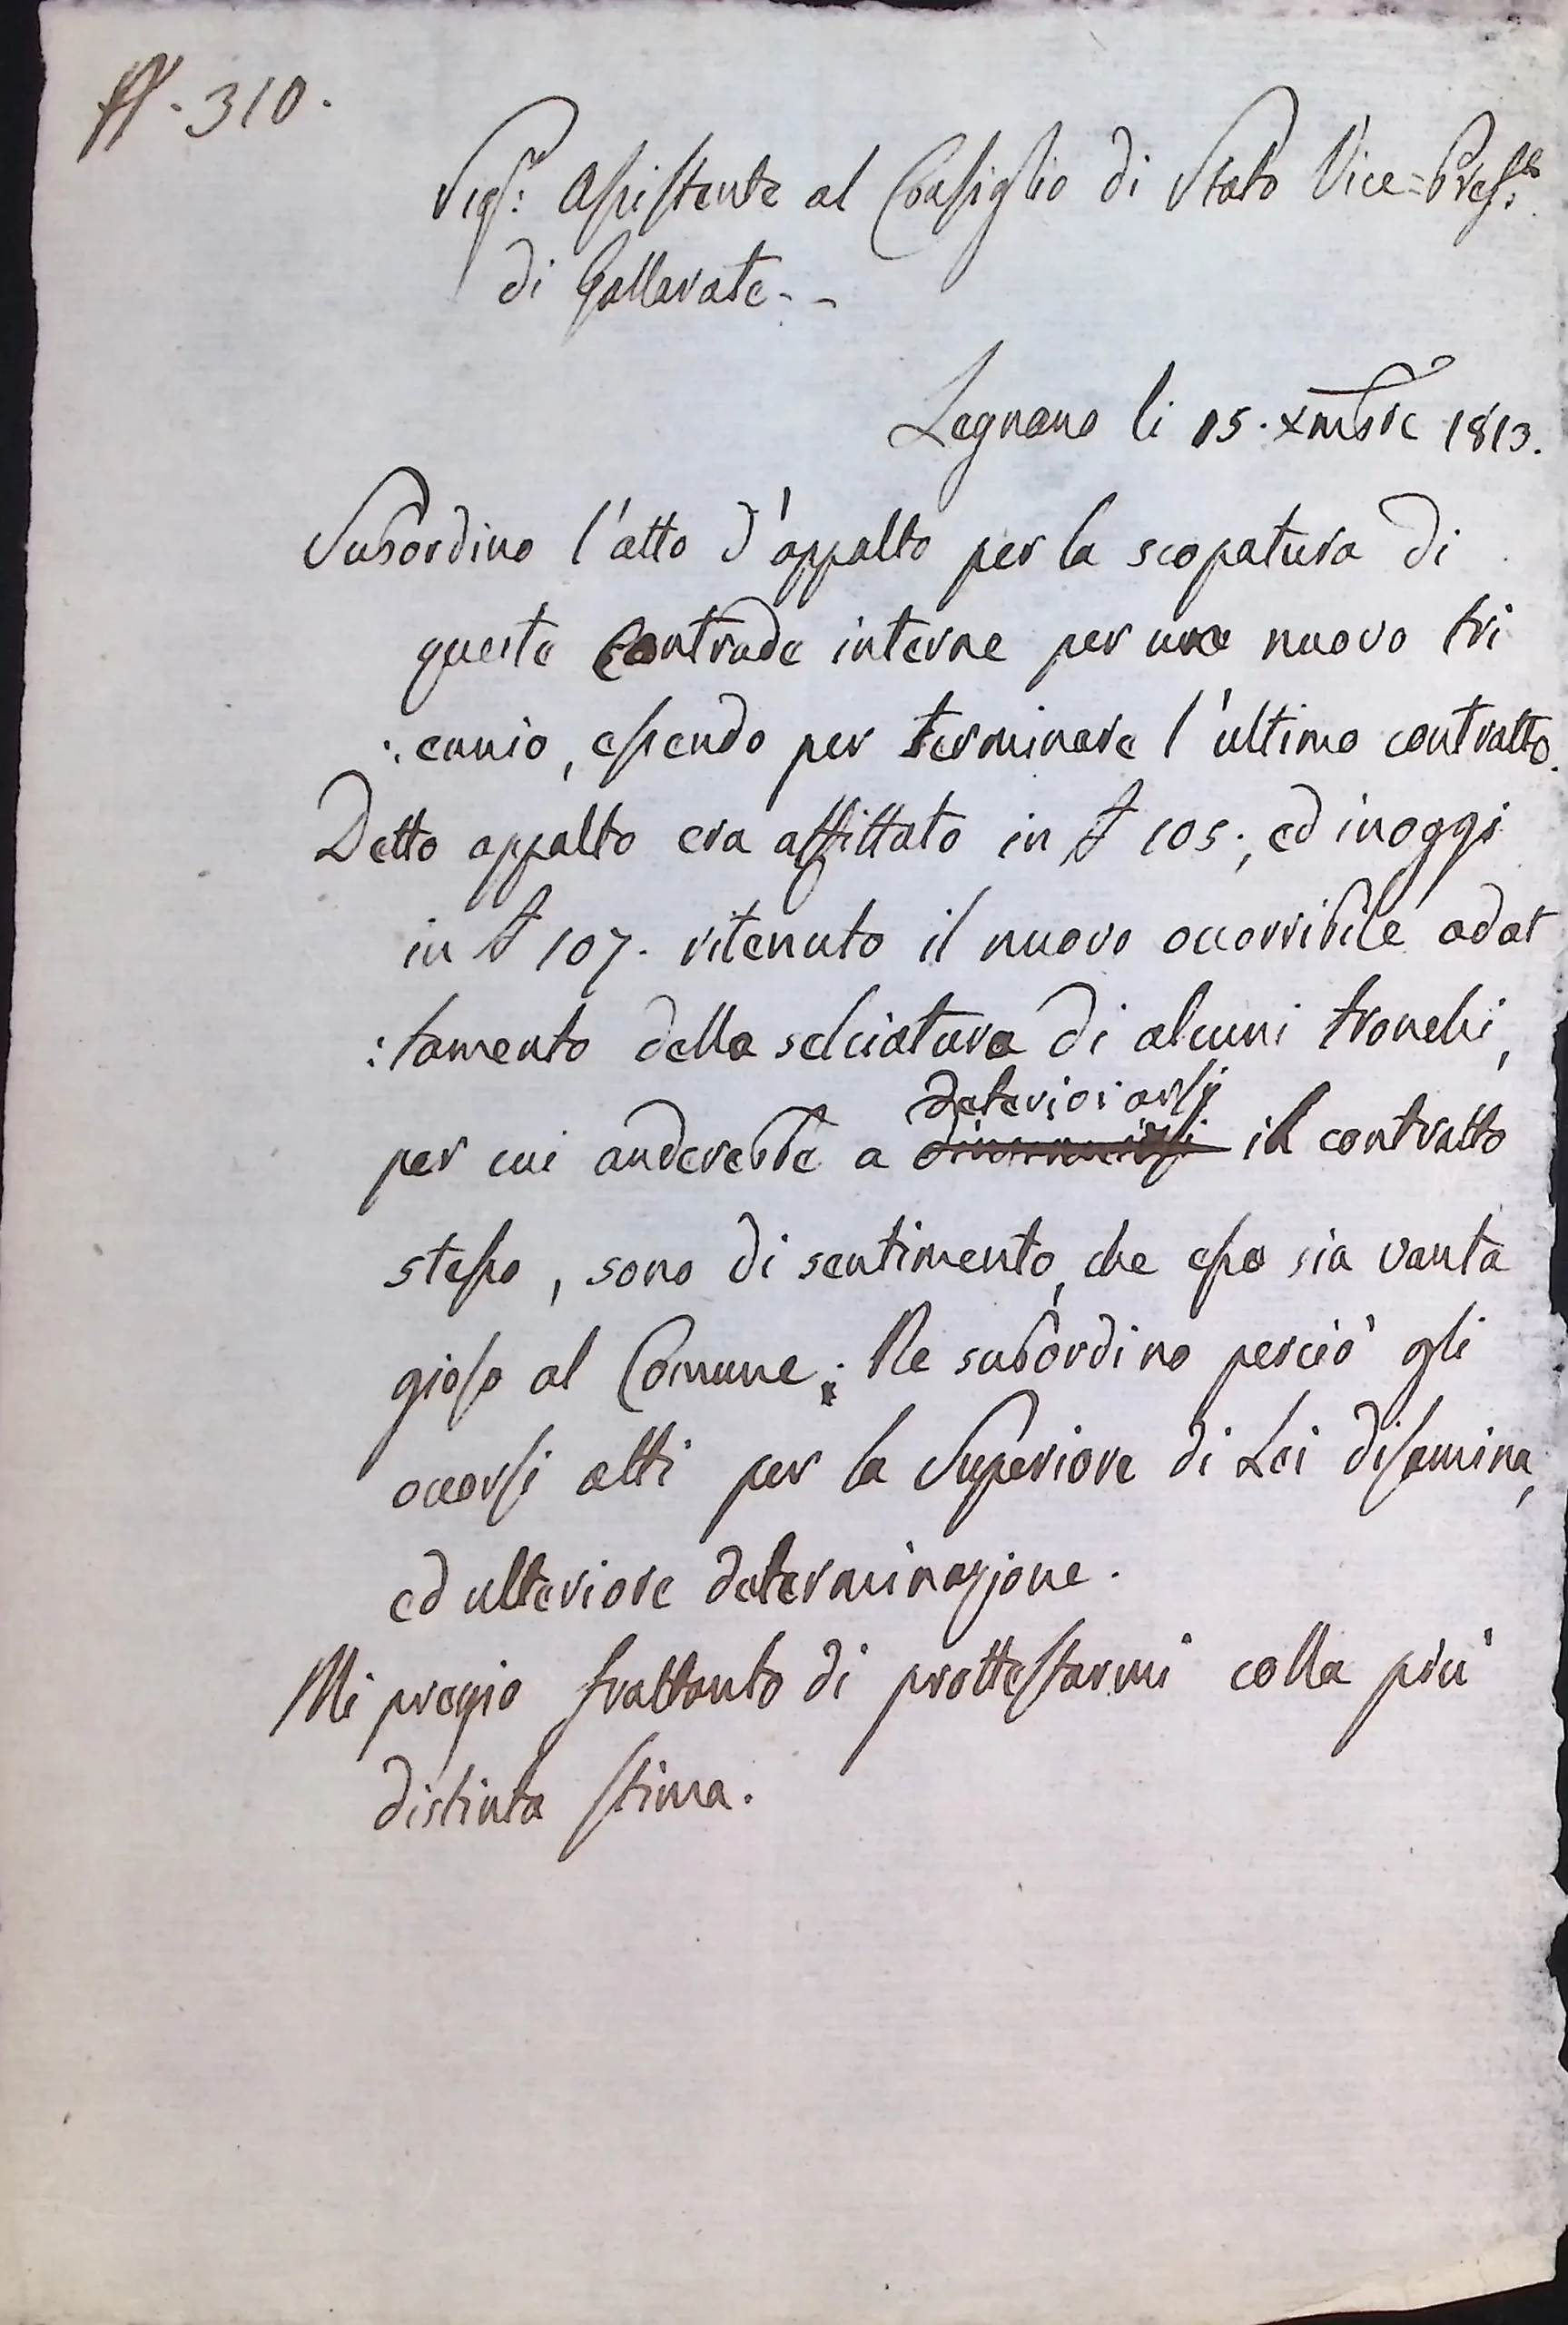 N. 310.
Sigr. Assistente al Consiglio di Stato Vice=Prefto
di Gallarate--
Legnano li 15. Xmbre 1813.
Subordino l'atto d'appalto per la scopatura di
queste Contrade interne per uno nuovo tri
:ennio, essendo per terminare l'ultimo contratto.
Detto appalto era affittato in £ 105., ed inoggi
in £ 107. ritenuto il nuovo occorribile adat
:tamento della selciatura di alcuni tronchi,
per cui anderebbe a deteriorarsi il contratto
stesso, sono di sentimento, che esso sia vanta
gioso al Comune; Ne subordino perciò gli
occorsi atti per la Superiore di Lei disamina,
ed ulteriore determinazione.
Mi pregio frattanto di prottestarmi colla più
distinta stima.